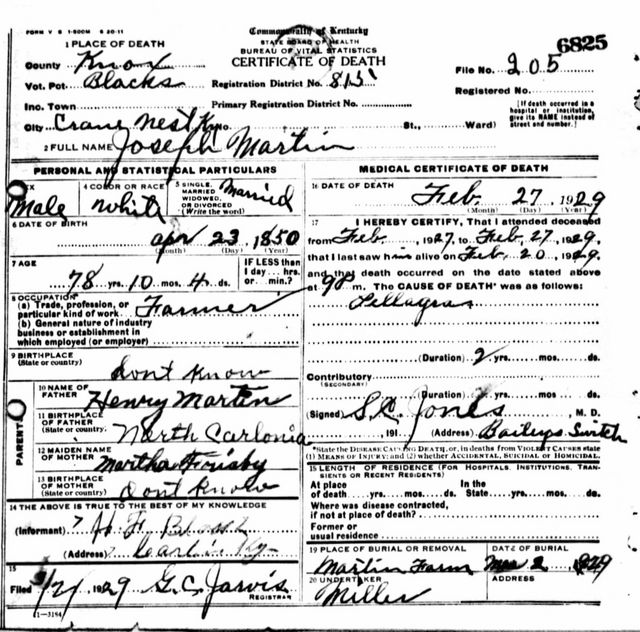 FORM V S 1-500M 6 20-11
Commonwealth of Kentucky
STATE BOARD OF HEALTH
BUREAU OF VITAL STATISTICS
CERTIFICATE OF DEATH
6825
File No. 205
Registered No.
[If death occurred in a hospital or institution, give its NAME instead of street and number.]
1 PLACE OF DEATH
County Knox
Vot. Pct. Blacks
Registration District No. 815
Inc. Town
Primary Registration District No.
City Crane Nest Ky No. St., Ward)
2 FULL NAME Joseph Martin
PERSONAL AND STATISTICAL PARTICULARS
SEX
Male
4 COLOR OR RACE
White
5 SINGLE, MARRIED WIDOWED, OR DIVORCED (Write the word)
Married
6 DATE OF BIRTH
apr 23 1850
(Month) (Day) (Year)
7 AGE
78 yrs. 10 mos. 4 ds.
IF LESS than 1 day... hrs. or min.?
8 OCCUPATION
(a) Trade, profession, or particular kind of work Farmer
(b) General nature of industry business or establishment in which employed (or employer)
9 BIRTHPLACE
(State or country)
Dont Know
PARENTS
10 NAME OF FATHER
Henry Martin
11 BIRTHPLACE OF FATHER
(State or country.
North Carlonia
12 MAIDEN NAME OF MOTHER
Martha Frisby
13 BIRTHPLACE OF MOTHER
(State or country)
Dont Know
14 THE ABOVE IS TRUE TO THE BEST OF MY KNOWLEDGE
(Informant) H F
(Address) Ky
15
Filed 1929 G. C. Jarvis
REGISTRAR
11-3184
MEDICAL CERTIFICATE OF DEATH
16 DATE OF DEATH
Feb 27 1929
(Month) (Day) (Year)
17 I HEREBY CERTIFY, That I attended deceased
from Feb 1927, to Feb, 27, 1929,
that I last saw him alive on Feb 20 1929,
and that death occurred on the date stated above
at m. The CAUSE OF DEATH* was as follows:
Pellagra
(Duration) 2 yrs. mos. ds.
Contributory
(SECONDARY)
(Duration) yrs. mos. ds.
(Signed) Jones, M. D.
, 191 (Address) Baileys Switch
*State the DISEASE CAUSING DEATH, or, in deaths from VIOLENT CAUSES state
(1) MEANS OF INJURY; and (2) whether ACCIDENTAL, SUICIDAL or HOMICIDAL.
15 LENGTH OF RESIDENCE (FOR HOSPITALS, INSTITUTIONS, TRANSIENTS OR RECENT RESIDENTS)
At place of death yrs. mos. ds.
In the State yrs. mos. ds.
Where was disease contracted, if not at place of death?
Former or usual residence
19 PLACE OF BURIAL OR REMOVAL
Martin Farm
DATE OF BURIAL
Mar 2 1929
20 UNDERTAKER
Miller
ADDRESS